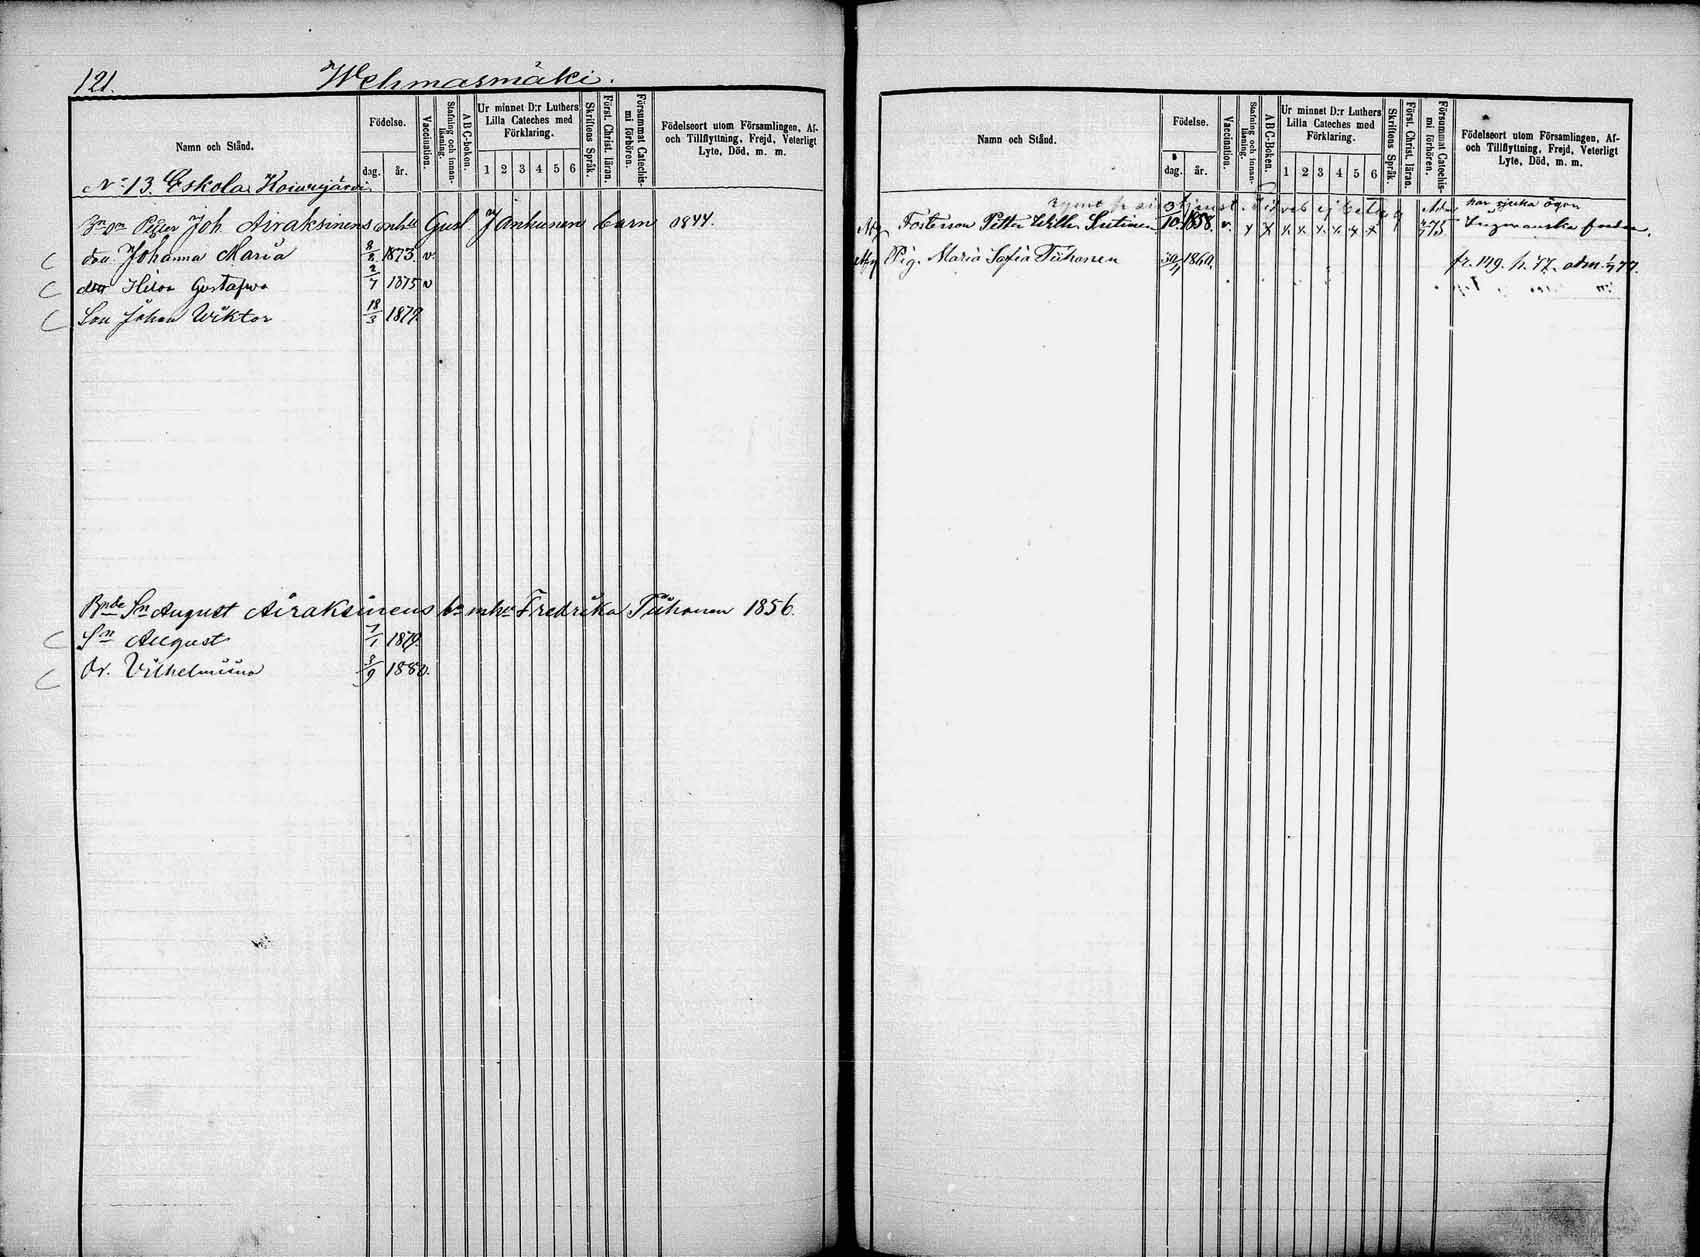 121.
Wehmasmäki.
Namn och Stånd.
Födelse.
dag.
år.
Vaccination.
Stafning och innan-läsning.
ABC-boken.
Ur minnet D:r Luthers Lilla Cateches med Förklaring.
1 2 3 4 5 6
Skriftens Språk.
Först. Christ. läran.
Försummat Catechis-mi förhören.
Födelseort utom Församlingen, Af- och Tillflyttning, Frejd, Veterligt Lyte, Död, m. m.
No 13. Eskola Koiwujärvi
Petter Joh Airaksinens enka Gust Jankunen barn 1844.
dou Johanna Maria 8/2 1873 v
dou Hilda Gustafwa 2/7 1875 v
Son Johan Wiktor 18/3 1879.
Bnde Sn August Airaksinens hu Fredrika Tiihonen 1856.
Sn August 7/1 1879.
Dr. Vilhelmiina 3/9 1880.
Namn och Stånd.
Födelse.
dag.
år.
Vaccination.
Stafning och innan-läsning.
ABC-boken.
Ur minnet D:r Luthers Lilla Cateches med Förklaring.
1 2 3 4 5 6
Skriftens Språk.
Först. Christ. läran.
Försummat Catechis-mi förhören.
Födelseort utom Församlingen, Af- och Tillflyttning, Frejd, Veterligt Lyte, Död, m. m.
har sjuka ögon
Fosterson Petter Wilh. 3/10 1858. v. x x x x x x x x
Pig. Maria Sofia Tiihonen 30/4 1860. fr. 119. h. 77.